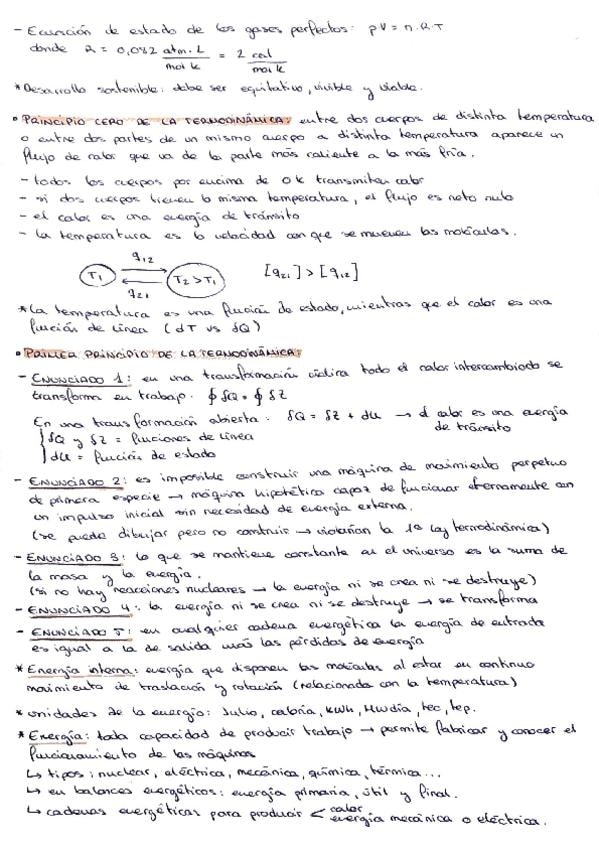 - Ecuación de estado de los gases perfectos: pV = n.R.T
donde R = 0,082 atm.L / mol k = 2 cal / mol k
* Desarrollo sostenible: debe ser equitativo, vivible y viable.
• PRINCIPIO CERO DE LA TERMODINÁMICA: entre dos cuerpos de distinta temperatura
o entre dos partes de un mismo cuerpo a distinta temperatura aparece un
flujo de calor que va de la parte más caliente a la más fría.
- todos los cuerpos por encima de 0 k transmiten calor
- si dos cuerpos tienen la misma temperatura, el flujo es neto nulo
- el calor es una energía de tránsito
- la temperatura es la velocidad con que se mueven las moléculas.
q12
T1 T2 > T1 [q21] > [q12]
q21
* La temperatura es una función de estado, mientras que el calor es una
función de línea (dT vs δQ)
• PRIMER PRINCIPIO DE LA TERMODINÁMICA:
- ENUNCIADO 1: en una transformación cíclica todo el calor intercambiado se
transforma en trabajo. ∮ δQ = ∮ δZ
En una transformación abierta: δQ = δZ + dU → el calor es una energía
de tránsito
{ δQ y δZ = funciones de línea
dU = función de estado
- ENUNCIADO 2: es imposible construir una máquina de movimiento perpetuo
de primera especie → máquina hipotética capaz de funcionar eternamente con
un impulso inicial sin necesidad de energía externa.
(se puede dibujar pero no construir → violarían la 1ª ley termodinámica)
- ENUNCIADO 3: lo que se mantiene constante en el universo es la suma de
la masa y la energía.
(si no hay reacciones nucleares → la energía ni se crea ni se destruye)
- ENUNCIADO 4: la energía ni se crea ni se destruye → se transforma
- ENUNCIADO 5: en cualquier cadena energética la energía de entrada
es igual a la de salida más las pérdidas de energía
* Energía interna: energía que disponen las moléculas al estar en continuo
movimiento de traslación y rotación (relacionada con la temperatura)
* unidades de la energía: Julio, caloría, KWh, MWdía, tec, tep.
* Energía: toda capacidad de producir trabajo → permite fabricar y conocer el
funcionamiento de las máquinas
↳ tipos: nuclear, eléctrica, mecánica, química, térmica...
↳ en balances energéticos: energía primaria, útil y final.
↳ cadenas energéticas para producir < calor
energía mecánica o eléctrica.